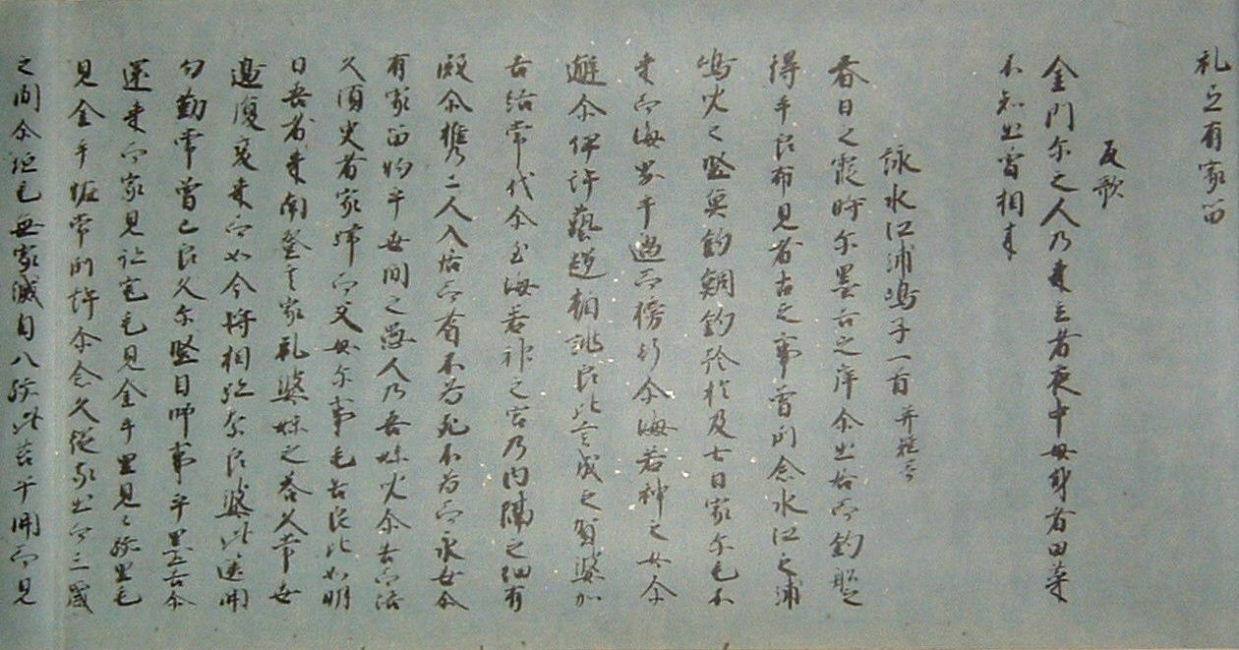 礼之有家留
反歌
金門尓之人乃来立者夜中母身者田菜
不知出曽相来
詠水江浦嶋子一首 并短哥
春日之霞時尓墨吉之岸尓出居而釣船之
得乎良布見者古之事曽所念水江之浦
嶋児之堅魚釣鯛釣矜及七日家尓毛不
来而海界乎過而榜行尓海若神之女尓
邂尓伊許藝趍相誂良比言成之賀婆加
吉結常代尓至海若神之宮乃内隔之細有
殿尓携二人入居而耆不為死不為而永世尓
有家留物乎世間之愚人乃吾妹児尓告而語
久須臾者家歸而父母尓事毛告良比如明
日吾者来南登言家礼婆妹之答久常世
邊復變来而如今将相跡奈良婆此篋開
勿勤常曽己良久尓堅目師事乎墨吉尓
還来而家見跡宅毛見金手里見跡里毛
見金手恠常所許尓念久従家出而三歳
之間尓垣毛無家滅目八跡此筥乎開而見